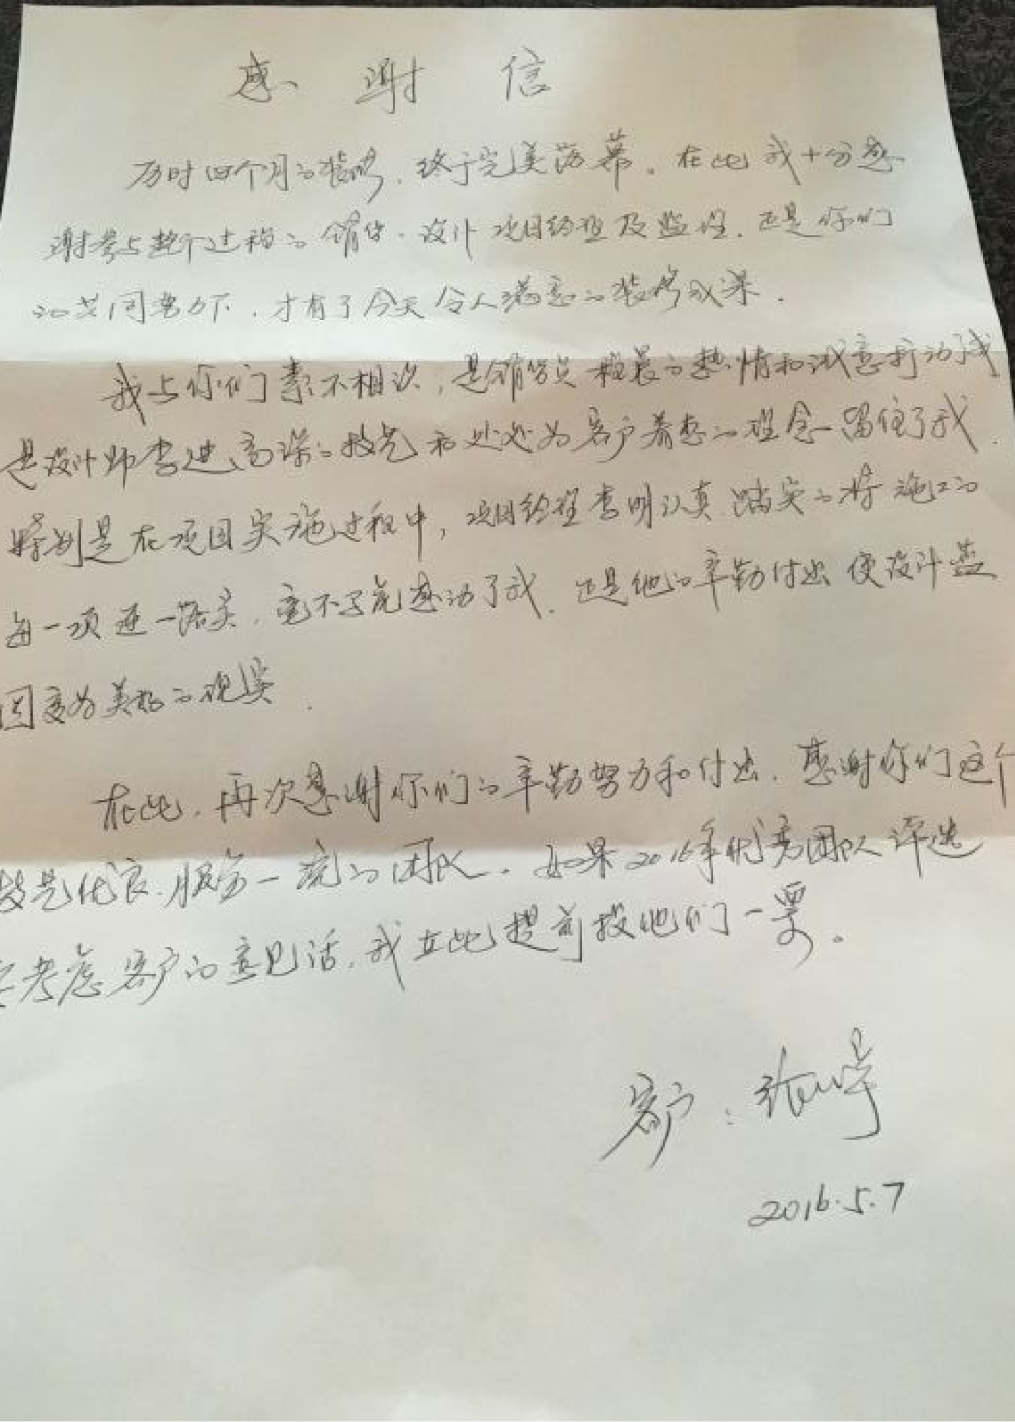 感谢信
历时四个月的装修，终于完美落幕。在此我十分感
谢参与整个过程的销售、设计、项目经理及监理，正是你们
的共同努力下，才有了今天令人满意的装修成果。
我与你们素不相识，是销售员的热情和诚意打动了我
是设计师李进高深的技艺和处处为客户着想的理念留住了我
特别是在项目实施过程中，项目经理李明认真踏实的将施工的
每一项逐一落实，毫不马虎感动了我。正是他的辛勤付出使设计蓝
图变为美好的现实。
在此，再次感谢你们的辛勤努力和付出，感谢你们这个
技艺优良、服务一流的团队。如果2016年优秀团队评选
考虑客户的意见话，我在此提前投他们一票。
客户：张
2016.5.7